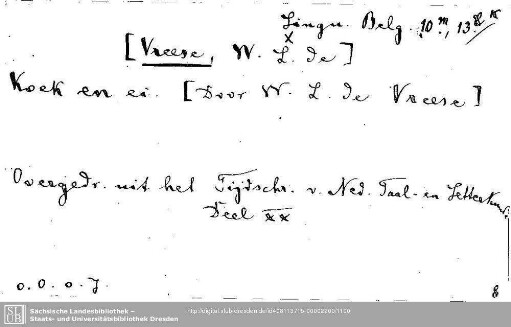 Lingu. Belg. 10 m, 13
[Vreese, W. L. de]
Koek en ei. [Door W. L. de Vreese]
Overgedr. uit het Tijdschr. v. Ned. Taal- en Letterkunde.
Deel XX
o. O. o. J.
8
Sächsische Landesbibliothek –
Staats- und Universitätsbibliothek Dresden